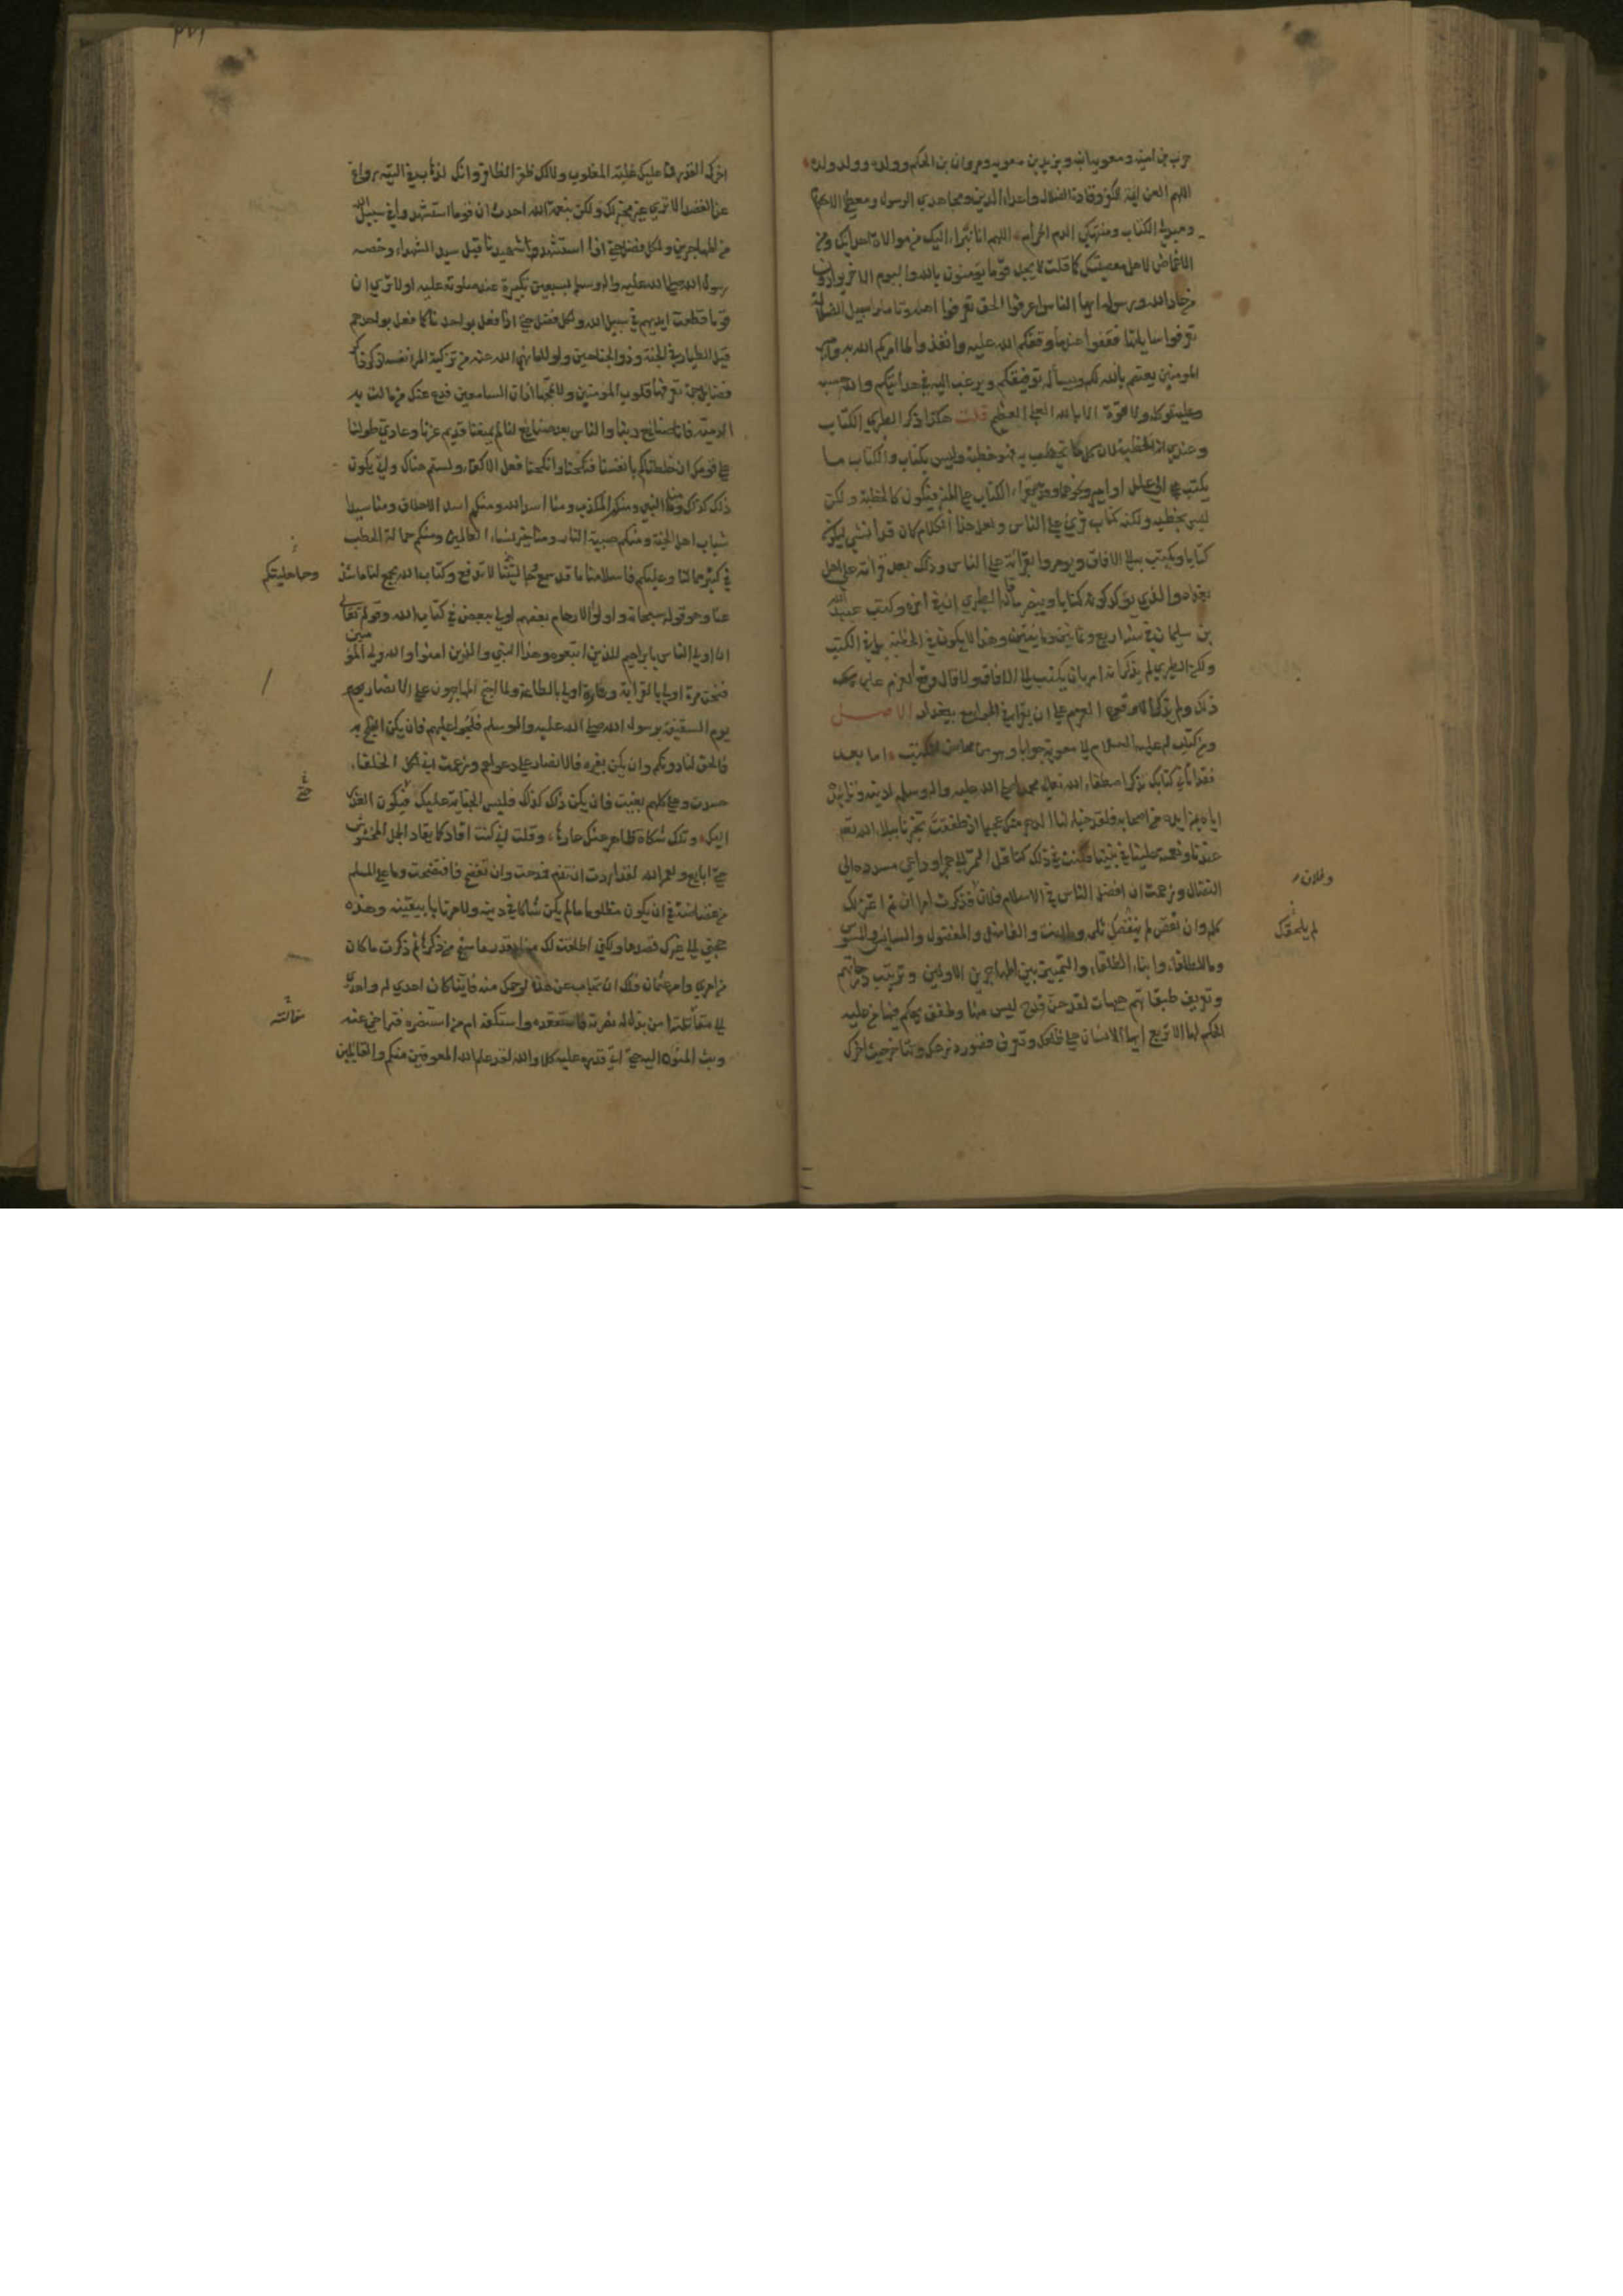 حرب بن امية ومعوية ابنه ويزيد بن معوية ومروان بن الحكم وولده وولد ولده
اللهم العن ايمة الكفر وقادة الضلال واعداء الدين ومجاهدي الرسول ومعطلي الاحكام
ومبدلي الكتاب ومنتهكي الدم الحرام اللهم انا نتبراء اليك من موالاة اعدائك ومن
الاغماض لاهل معصيتك كما قلت لا تجد قوما يؤمنون بالله واليوم الاخر يوادون
من حاد الله ورسوله ايها الناس اعرفوا الحق تعرفوا اهله وتاملوا سبيل الضلالة
تعرفوا سابلها فقفوا عندما وقفكم الله عليه وانفذوا لما امركم الله به وامير
المومنين يعتصم بالله لكم ويساله توفيقكم ويرغب اليه في هدايتكم والله حسبه
وعليه توكله ولا قوة الا بالله العلي العظيم قلت هكذا ذكر الطبري الكتاب
وعندي انه الخطبة لان كل ما يخطب به فهو خطبة وليس بكتاب والكتاب ما
يكتب الى عامل او امير ونحوهما وقد يقراء الكتاب على المنبر فيكون كالخطبة ولكن
ليس بخطبة ولكنه كتاب قرئ على الناس ولعل هذا الكلام كان قد انشئ ليكون
كتابا ويكتب به الى الافاق ويومروا بقراته على الناس وذلك بعد قراته على اهل
بغداد والذي يؤكد كونه كتابا وينصر ما قاله الطبري ان في اخره وكتب عبيد الله
بن سليمان في سنة اربع وثمانين ومائتين وهذا لا يكون في الخطبة بل في الكتب
ولكن الطبري لم يذكر انه امر بان يكتب الى الافاق ولا قال وقع العزم على
ذلك ولم يذكر الا وقوع العزم على ان يقرا في الجوامع ببغداد الاصل
ومن كتاب له عليه السلام الى معوية جوابا وهو من محاسن الكتب اما بعد
فقد اتاني كتابك تذكر اصطفاء الله تعالى محمدا صلى الله عليه واله وسلم لدينه وتاييده
اياه بمن ايده من اصحابه فلقد خبا لنا الدهر منك عجبا اذ طفقت تخبرنا ببلاء الله تعالى
عندنا ونعمته علينا في نبينا فكنت في ذلك كناقل التمر الى هجر او داعي مسدده الى
النضال وزعمت ان افضل الناس في الاسلام فلان فذكرت امرا ان تم اعتزلك
وفلان
كله وان نقص لم ينقصك ثلمه وما انت والفاضل والمفضول والسايس والمسوس
لم يلحقك
وما للطلقاء وابناء الطلقاء والتمييز بين المهاجرين الاولين وترتيب درجاتهم
وتعريف طبقاتهم هيهات لقد حن قدح ليس منها وطفق يحكم فيها من عليه
الحكم لها الا تربع ايها الانسان على ظلعك وتعرف قصور ذرعك وتتاخر حيث اخرك
اخرك القدر فما عليك غلبة المغلوب ولا لك ظفر الظافر وانك لذهاب في التيه رواغ
عن القصد الا ترى غير مخبر لك ولكن بنعمة الله احدث ان قوما استشهدوا في سبيل الله
من المهاجرين ولكل فضل حتى اذا استشهد شهيدنا قيل سيد الشهداء وخصه
رسول الله صلى الله عليه واله وسلم بسبعين تكبيرة عند صلوته عليه اولا ترى ان
قوما قطعت ايديهم في سبيل الله ولكل فضل حتى اذا فعل بواحدنا كما فعل بواحدهم
قيل الطيار في الجنة وذو الجناحين ولولا ما نهى الله عنه من تزكية المرء نفسه لذكر ذاكر
فضايل جمة تعرفها قلوب المؤمنين ولا تمجها اذان السامعين فدع عنك من مالت به
الرمية فانا صنايع ربنا والناس بعد صنايع لنا لم يمنعنا قديم عزنا وعادي طولنا
على قومك ان خلطناكم بانفسنا فنكحنا وانكحنا فعل الاكفاء ولستم هناك وانى يكون
ذلك كذلك ومنا النبي ومنكم المكذب ومنا اسد الله ومنكم اسد الاحلاف ومنا سيدا
شباب اهل الجنة ومنكم صبية النار ومنا خير نساء العالمين ومنكم حمالة الحطب
في كثير مما لنا وعليكم فاسلامنا ما قد سمع وجاهليتنا لا تدفع وكتاب الله يجمع لنا ما شذ
وجاهليتكم
عنا وهو قوله سبحانه واولو الارحام بعضهم اولى ببعض في كتاب الله وقوله تعالى
ان اولى الناس بابراهيم للذين اتبعوه وهذا النبي والذين امنوا والله ولي المؤمنين
فنحن مرة اولى بالقرابة وتارة اولى بالطاعة ولما احتج المهاجرون على الانصار يوم
يوم السقيفة برسول الله صلى الله عليه واله وسلم فلجوا عليهم فان يكن الفلج به
فالحق لنا دونكم وان يكن بغيره فالانصار على دعواهم وزعمت اني لكل الخلفاء
حسدت وعلى كلهم بغيت فان يكن ذلك كذلك فليس الجناية عليك فيكون العذر
اليك وتلك شكاة ظاهر عنك عارها وقلت اني كنت اقاد كما يقاد الجمل المخشوش
حتى ابايع ولعمر الله لقد اردت ان تذم فمدحت وان تفضح فافتضحت وما على المسلم
من غضاضة في ان يكون مظلوما ما لم يكن شاكا في دينه ولا مرتابا بيقينه وهذه
حجتي الى غيرك قصدها ولكني اطلقت لك منها بقدر ما سنح من ذكرها ثم ذكرت ما كان
من امري وامر عثمان فلك ان تجاب عن هذه لرحمك منه فاينا كان اعدى له واهدى
الى مقاتله امن بذل له نصرته فاستقعده واستكفه ام من استنصره فتراخى عنه
وبث المنون اليه حتى اتى قدره عليه كلا والله لقد علم الله المعوقين منكم والقايلين